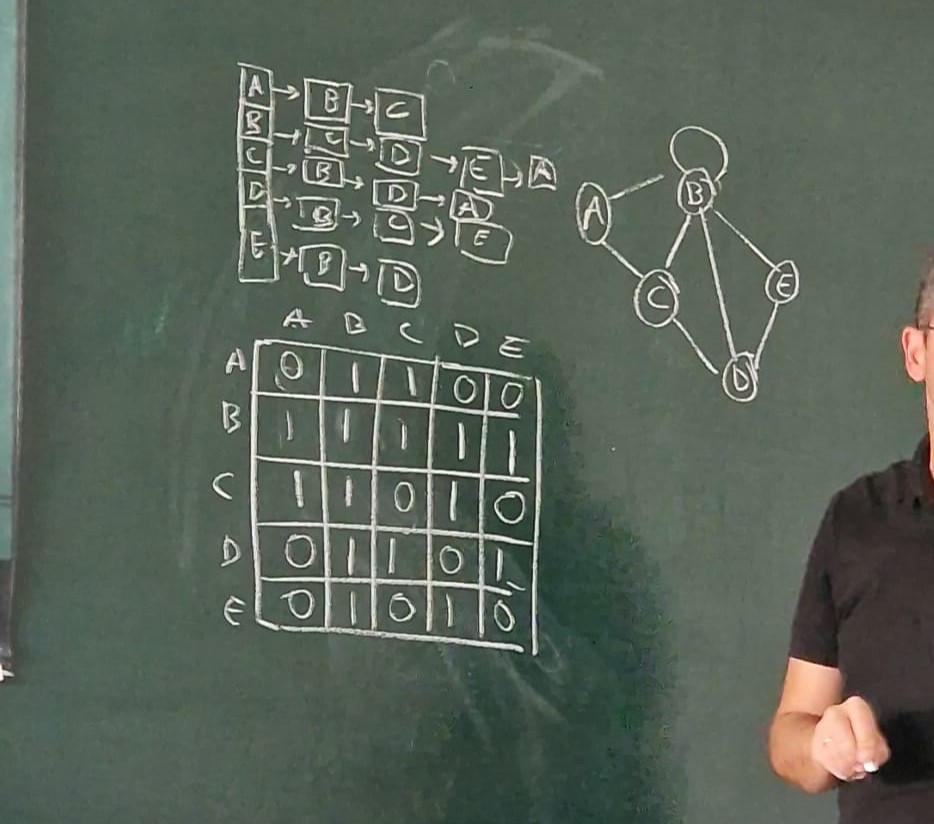 A → B → C
B → C → D → E → A
C → B → D → A
D → B → C → E
E → B → D
A B C D E
A 0 1 1 0 0
B 1 1 1 1 1
C 1 1 0 1 0
D 0 1 1 0 1
E 0 1 0 1 0
B
A
E
C
D